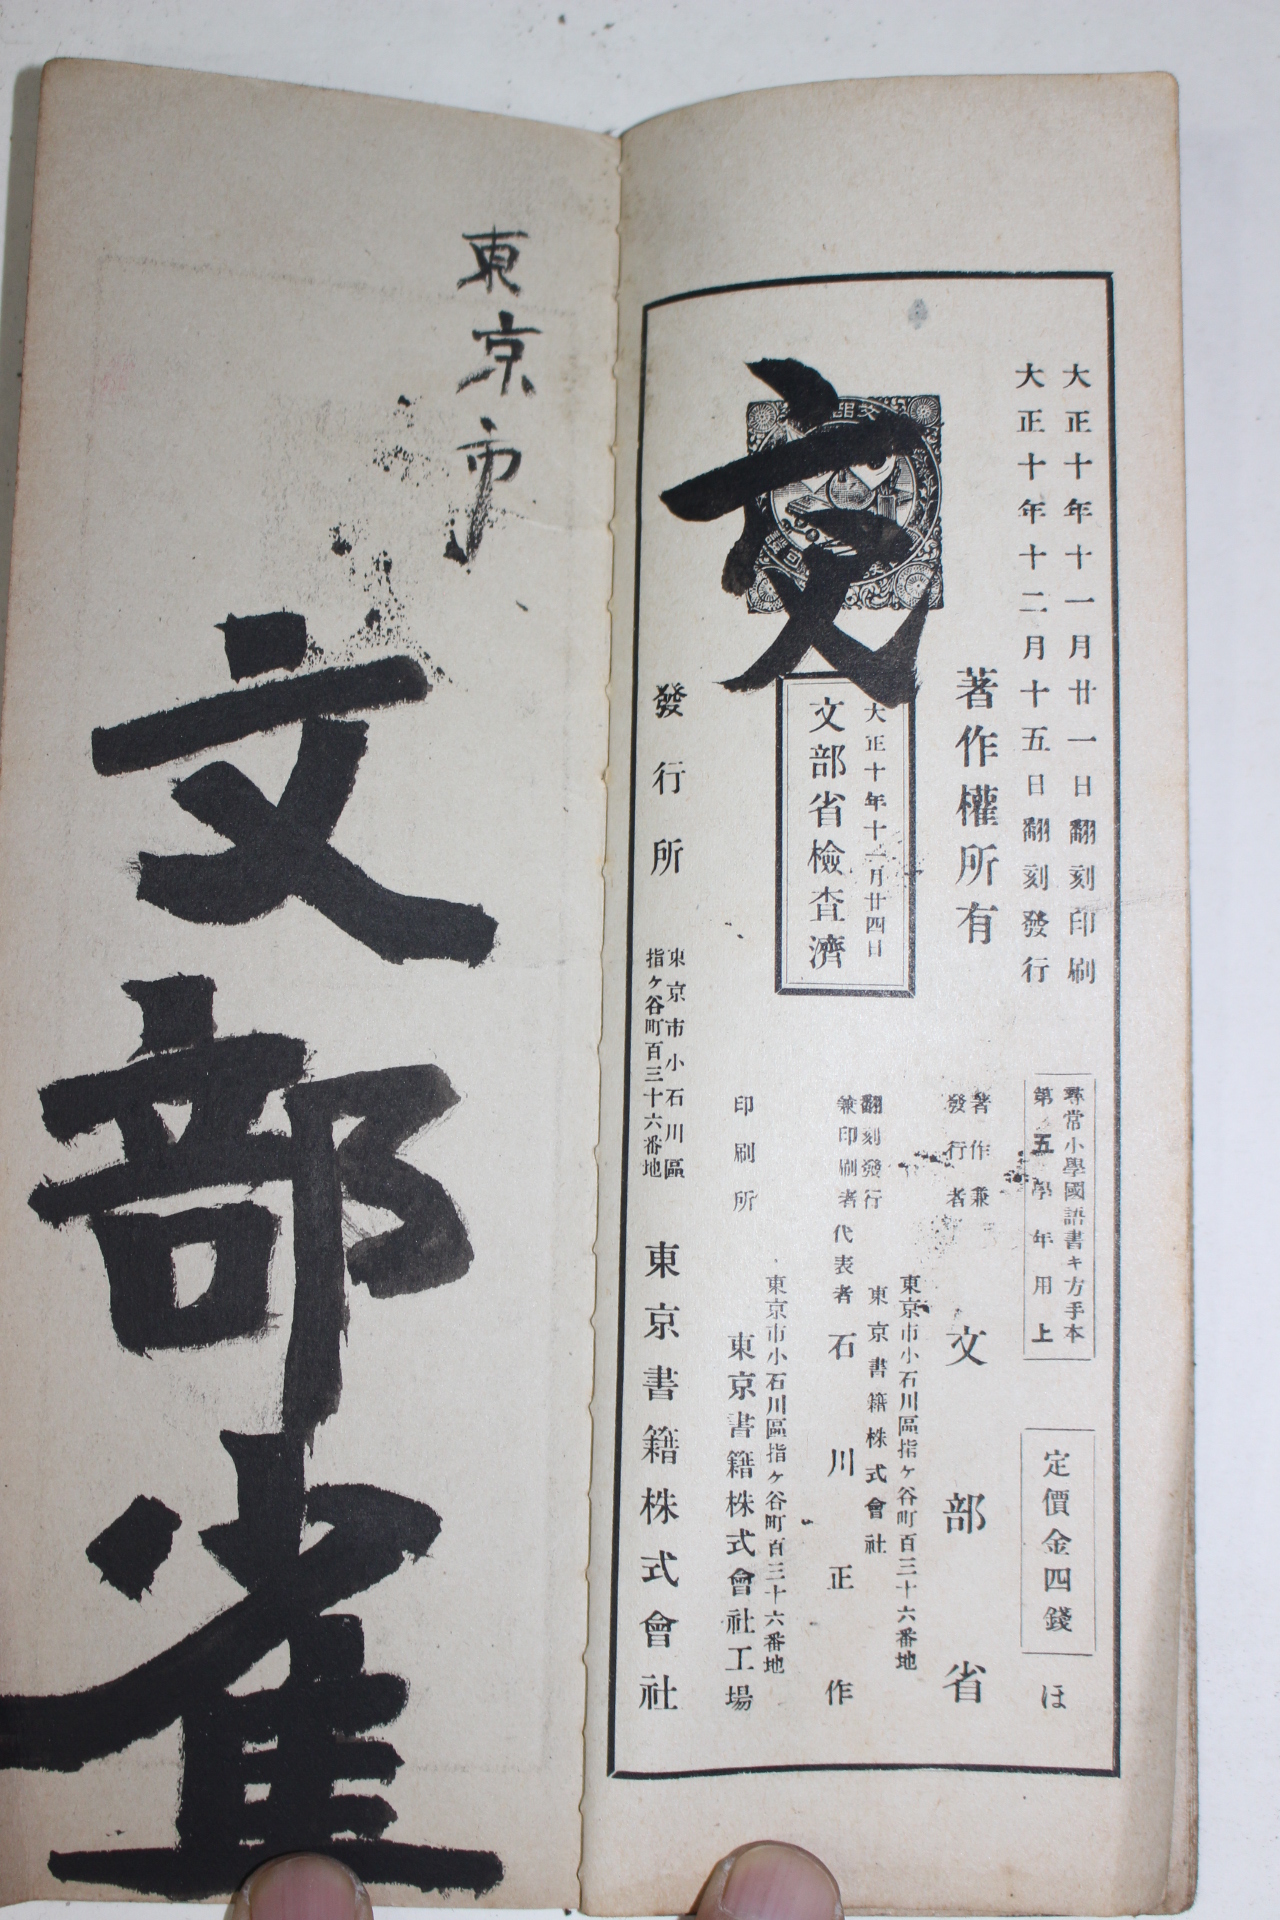 大正十年十一月廿一日翻刻印刷
大正十年十二月十五日翻刻發行
著作權所有
大正十年十一月廿四日
文部省檢査濟
文
尋常小學國語書キ方手本
第五學年用上
定價金四錢
ほ
著作兼
發行者
文部省
東京市小石川區指ヶ谷町百三十六番地
翻刻發行
兼印刷者
東京書籍株式會社
代表者 石川正作
東京市小石川區指ヶ谷町百三十六番地
印刷所
東京書籍株式會社工場
發行所
東京市小石川區
指ヶ谷町百三十六番地
東京書籍株式會社
東京市
文部省